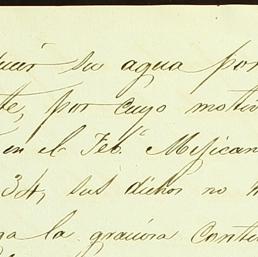 su agua por
te, por cuyo motivo
en el Feb.º Mejican
34, sus dichos no
la graciosa conti